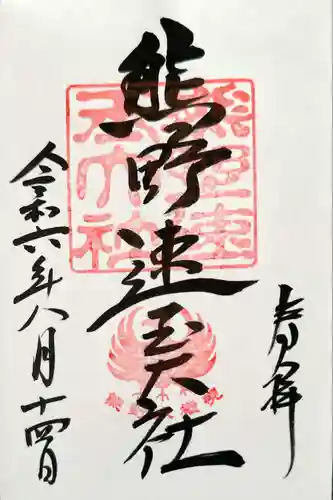 奉拝
熊野速玉大社
令和六年八月十四日
熊野速玉大社